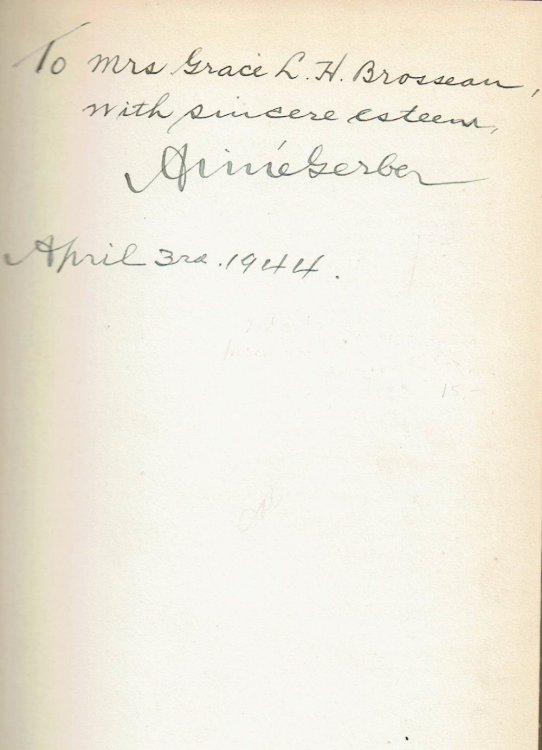 To Mrs Grace L. H. Brosseau,
with sincere esteem,
Aimé Gerber
April 3rd. 1944.
15.-